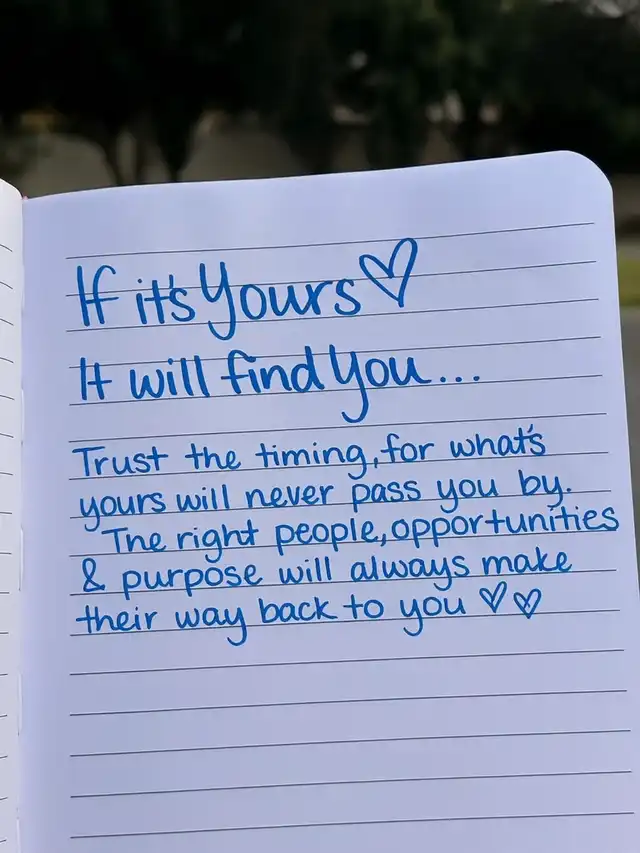 If it's Yours ♡
It will find You...
Trust the timing, for what's
yours will never pass you by.
The right people, opportunities
& purpose will always make
their way back to you ♡♡